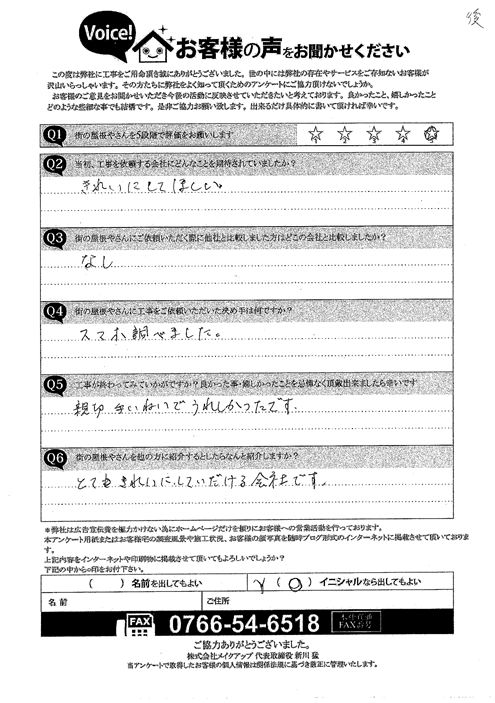 後
Voice!
お客様の声をお聞かせください
この度は弊社に工事をご用命頂き誠にありがとうございました。世の中には弊社の存在やサービスをご存知ないお客様が
沢山いらっしゃいます。その方たちに弊社をよく知って頂くためのアンケートにご協力頂けないでしょうか。
お客様のご意見をお聞かせいただき今後の活動に反映させていただきたいと考えております。良かったこと、嬉しかったこと
どのような些細な事でも結構です。是非ご協力お願い致します。出来るだけ具体的に書いて頂ければ幸いです。
Q1 街の屋根やさんを5段階で評価をお願いします
1 2 3 4 5
Q2 当初、工事を依頼する会社にどんなことを期待されていましたか?
きれいにしてほしい
Q3 街の屋根やさんにご依頼いただく際に他社と比較しました方はどこの会社と比較しましたか?
なし
Q4 街の屋根やさんに工事をご依頼いただいた決め手は何ですか?
スマホ調べました。
Q5 工事が終わってみていかがですか?良かった事・嬉しかったことを忌憚なく頂戴出来ましたら幸いです
親切 ていねいで うれしかったです.
Q6 街の屋根やさんを他の方に紹介するとしたらなんと紹介しますか?
とてもきれいにしていただける会社です。
※弊社は広告宣伝費を極力かけない為にホームページだけを頼りにお客様への営業活動を行っております。
本アンケート用紙またはお客様宅の調査風景や施工状況、お客様の顔写真を随時ブログ形式のインターネットに掲載させて頂いております。
上記内容をインターネットや印刷物に掲載させて頂いてもよろしいでしょうか?
下記の中から○印をお付下さい。
( ) 名前を出してもよい
(○) イニシャルなら出してもよい
名前
ご住所
FAX 0766-54-6518 本社直通 FAX番号
ご協力ありがとうございました。
株式会社メイクアップ 代表取締役 新川 猛
当アンケートで取得したお客様の個人情報は関係法規に基づき厳正に管理いたします。